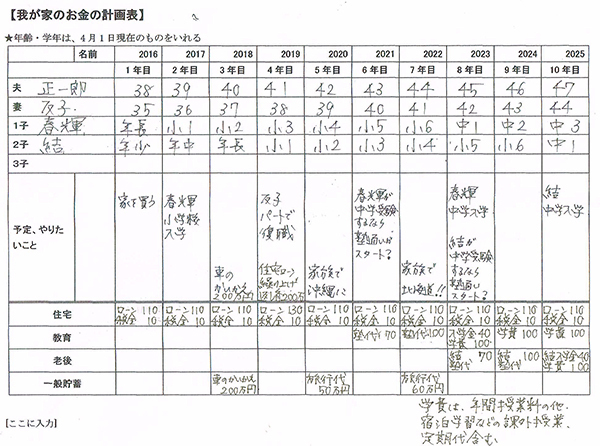 【我が家のお金の計画表】
★年齢・学年は、4月1日現在のものをいれる
名前 2016 2017 2018 2019 2020 2021 2022 2023 2024 2025
1年目 2年目 3年目 4年目 5年目 6年目 7年目 8年目 9年目 10年目
夫 正一郎 38 39 40 41 42 43 44 45 46 47
妻 友子 35 36 37 38 39 40 41 42 43 44
1子 春輝 年長 小1 小2 小3 小4 小5 小6 中1 中2 中3
2子 結 年少 年中 年長 小1 小2 小3 小4 小5 小6 中1
3子
予定、やりたいこと
家を買う
春輝
小学校
入学
車の
かいかえ
200万円
友子
パートで
復職
住宅ローン
繰り上げ
返済200万
家族で
沖縄に
春輝が
中学受験
するなら
塾通いが
スタート?
家族で
北海道!!
春輝
中学入学
結が
中学受験
するなら
塾通い
スタート?
結
中学入学
住宅 ローン110 ローン110 ローン110 ローン130 ローン110 ローン110 ローン110 ローン110 ローン110 ローン110
税金 10 税金 10 税金 10 税金 10 税金 10 税金 10 税金 10 税金 10 税金 10 税金 10
教育 塾代 70 塾代 100 入学金40 学費 100 学費 100
学費 100
老後 結 70 結 100 結入学金40
塾代 塾代 学費 100
一般貯蓄 車のかいかえ 旅行代 旅行代
200万円 50万円 60万円
[ここに入力]
学費は、年間授業料の他、
宿泊学習などの課外授業、
定期代含む